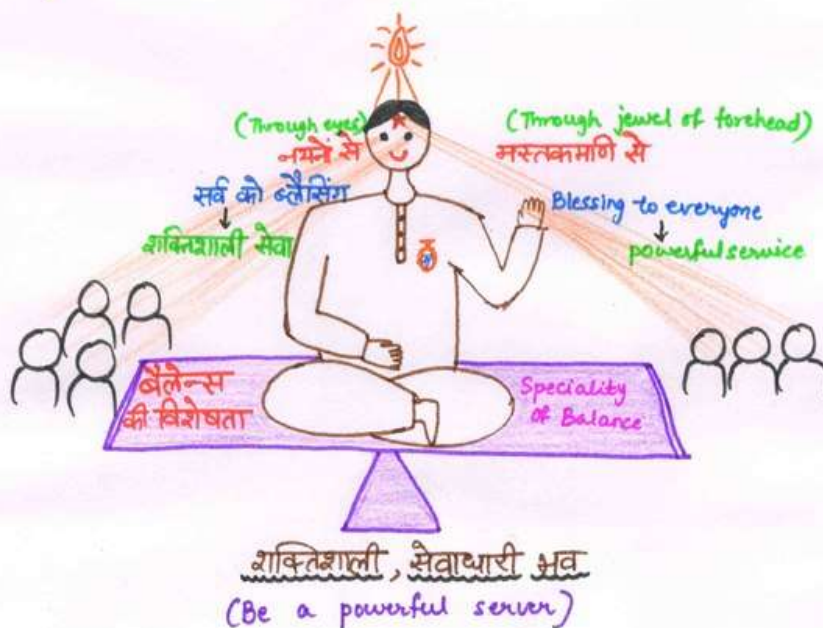 (Through eyes)
नयनों से
सर्व को ब्लैसिंग
↓
शक्तिशाली सेवा
(Through jewel of forehead)
मस्तकमणि से
Blessing to everyone
↓
powerful service
बैलेन्स
की विशेषता
Speciality
of Balance
शक्तिशाली, सेवाधारी भव
(Be a powerful server)